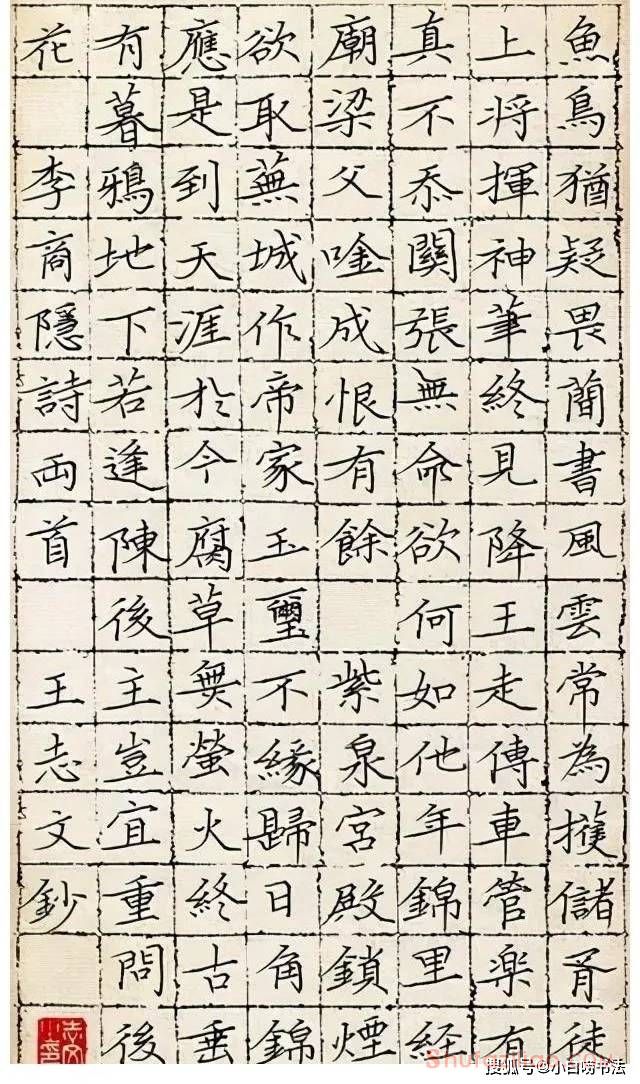 魚鳥猶疑畏簡書風雲常為擭儲胥徒
上將揮神筆終見降王走傳車管樂有
真不忝關張無命欲何如他年錦里經
廟梁父唫成恨有餘 紫泉宮殿鎖煙
欲取蕪城作帝家玉璽不緣歸日角錦
應是到天涯於今腐草無螢火終古垂
有暮鴉地下若逢陳後主豈宜重問後
花 李商隱詩兩首 王志文鈔
搜狐号@小白唠书法